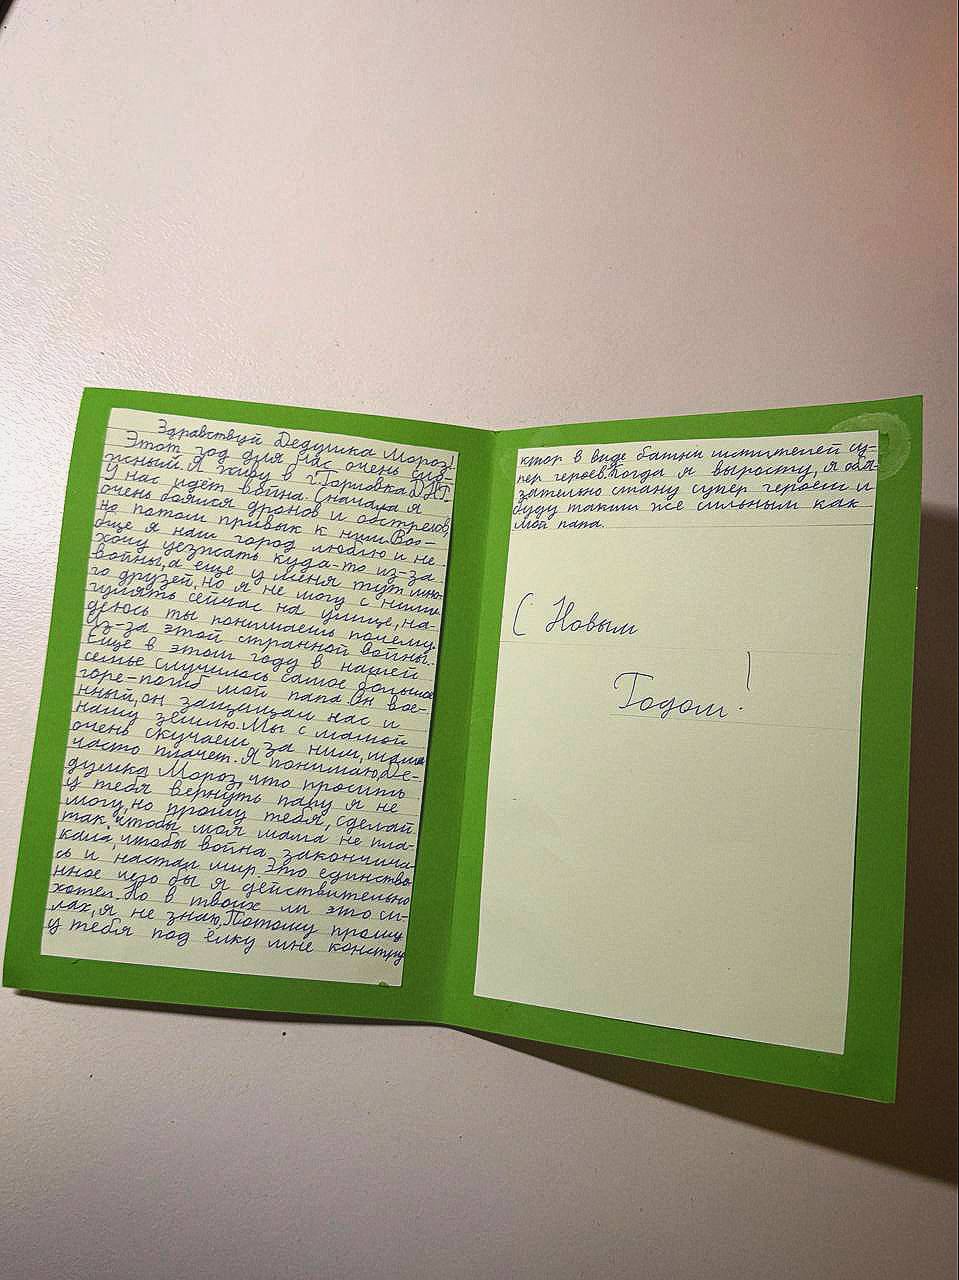 Здравствуй Дедушка Мороз!
Этот год для нас очень сло-
жный. Я живу в г. Горловка ДНР.
У нас идёт война. Сначала я
очень боялся дронов и обстрелов,
но потом привык к ним. Воо-
бще я наш город люблю и не
хочу уезжать куда-то из-за
войны, а ещё у меня тут мно-
го друзей, но я не могу с ними
гулять сейчас на улице, на-
деюсь ты понимаешь почему.
Из-за этой странной войны.
Ещё в этом году в нашей
семье случилось самое большое
горе-погиб мой папа. Он вое-
нный, он защищал нас и
нашу землю. Мы с мамой
очень скучаем за ним, мама
часто плачет. Я понимаю, Де-
душка Мороз, что просить
у тебя вернуть папу я не
могу, но прошу тебя, сделай
так, чтобы моя мама не пла-
кала, чтобы война закончила
сь и настал мир. Это единстве
нное чего бы я действительно
хотел. Но в твоих ли это си-
лах, я не знаю. Потому прошу
у тебя под ёлку мне констру
ктор в виде башни мстителей су-
пер героев. Когда я вырасту, я обя-
зательно стану супер героем и
буду таким же сильным как
мой папа.
С Новым
Годом!